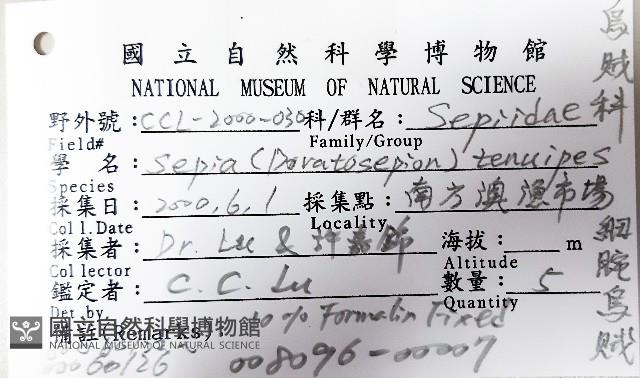 國立自然科學博物館
NATIONAL MUSEUM OF NATURAL SCIENCE
野外號：CCL-2000-030 科/群名：Sepiidae
Field# Family/Group
學 名：Sepia (Doratosepion) tenuipes
Species
採集日：2000,6,1 採集點：南方澳漁市場
Coll.Date Locality
採集者：Dr. Lu & 許嘉錦 海拔： m
Collector Altitude
鑑定者：C.C. Lu 數量：5
Det by Quantity
備註(Remarks) 10% Formalin Fixed
國立自然科學博物館
NATIONAL MUSEUM OF NATURAL SCIENCE
008096-00007
烏賊科
細腕烏賊